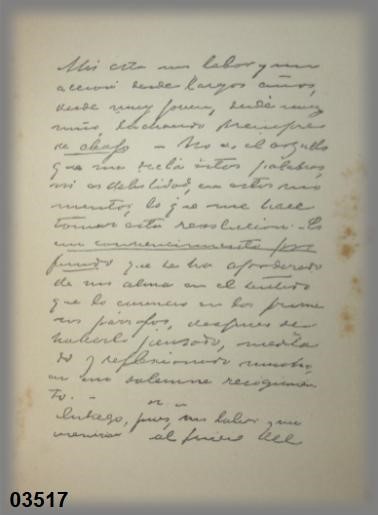 Mis esta mi labor y mi
acción desde largos años,
desde muy joven, desde muy
niño, luchando siempre
de abajo - No es el orgullo
que me dicta estas palabras,
ni es debilidad, en estos mo
mentos, lo que me hace
tomar esta resolucion. Es
un convencimiento pro
fundo que se ha apoderado
de mi alma en el sentido
que lo enuncio en los prime
ros párrafos, despues de
haberlo pensado, medita
do y reflexionado mucho,
en un solemne recogimien
to. -
Entrego, pues, mi labor y mi
memoria al juicio del
03517